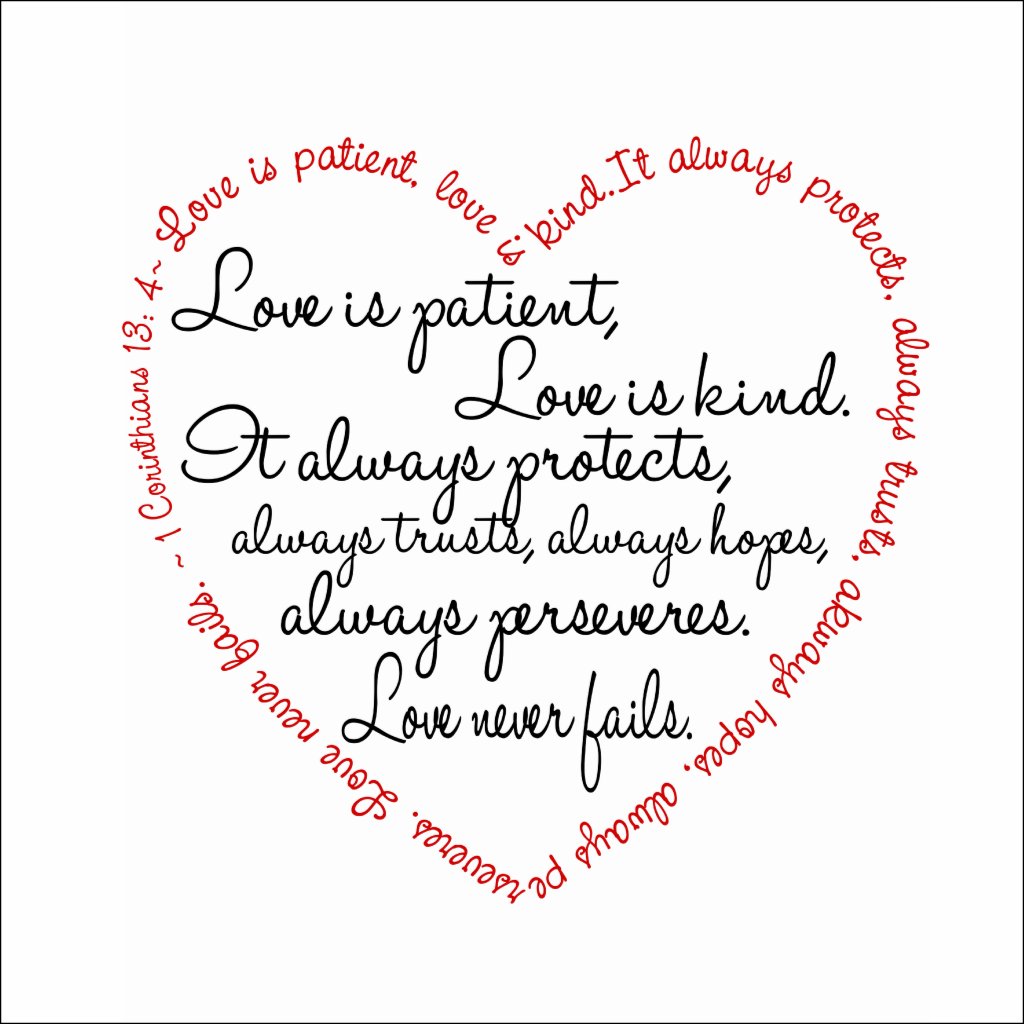 Love is patient, love is kind.It always protects, always trusts, akways hopes, always perseveres. Love never fails. ~1 Corinthians 13: 4~
Love is patient,
Love is kind.
It always protects,
always trusts, always hopes,
always perseveres.
Love never fails.